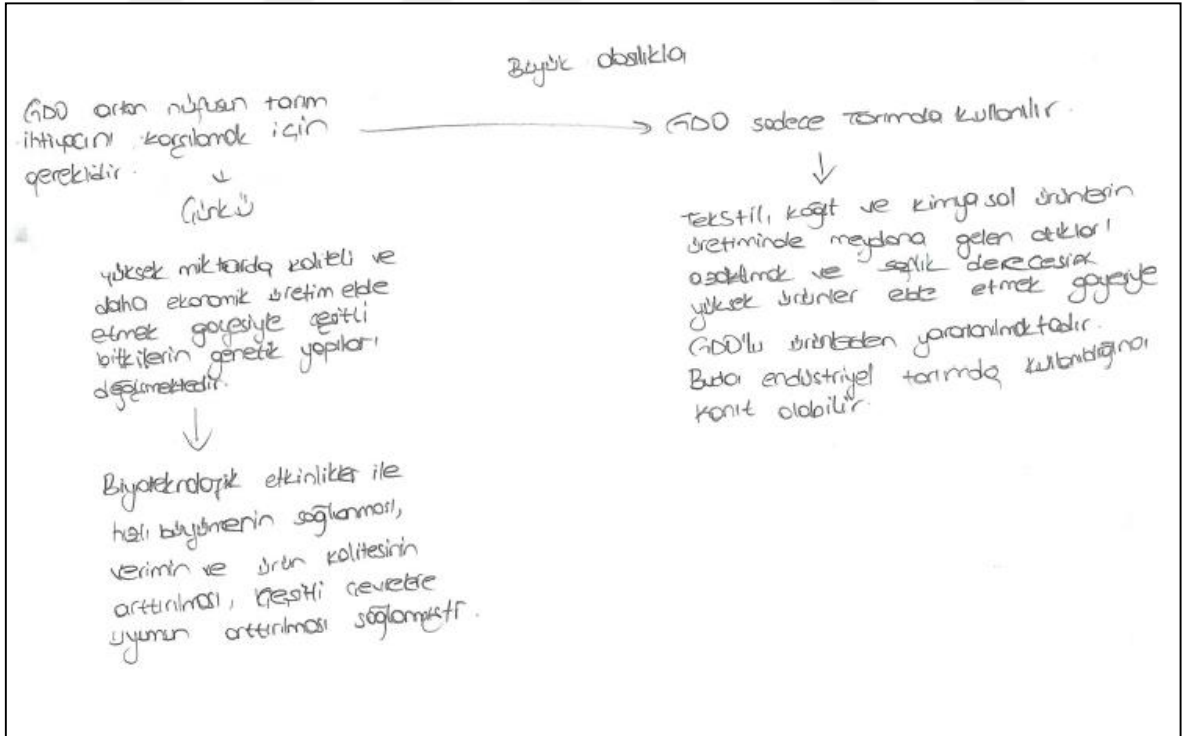 Büyük olasılıkla
GDO artan nüfusun tarım
ihtiyacını karşılamak için
gereklidir.
GDO sadece tarımda kullanılır.
Çünkü
yüksek miktarda kaliteli ve
daha ekonomik üretim elde
etmek gayesiyle çeşitli
bitkilerin genetik yapıları
değişmektedir.
Biyoteknolojik etkinlikler ile
hızlı büyümenin sağlanması,
verimin ve ürün kalitesinin
arttırılması, çeşitli çevrelere
uyumun arttırılması sağlanmıştır.
Tekstil, kağıt ve kimyasal ürünlerin
üretiminde meydana gelen atıkları
azaltmak ve saflık derecesi
yüksek ürünler elde etmek gayesiyle
GDO'lu ürünlerden yararlanılmaktadır.
Buda endüstriyel tarımda kullanıldığına
kanıt olabilir.